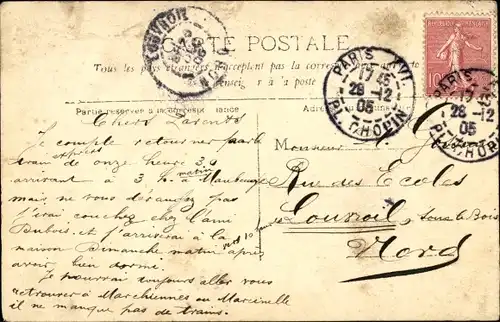 CARTE POSTALE
Tous les pays étrangers n'acceptent pas la correspondance
se renseigner à la poste
Partie réservée à la correspondance
LOUVROIL
PARIS XVI
17 45
28 -12
05
PL. CHOPIN
RÉPUBLIQUE FRANÇAISE
10
PARIS
17 45
28 -12
05
PL. CHOPIN
Chers Parents
Je compte retourner par le
train express de onze heures 30
arrivant à 3 h. matin Maubeuge
mais ne vous dérangez pas
j'irai coucher chez l'ami
Dubois. et j'arriverai à la
maison Dimanche matin vers 10 heures après
avoir bien dormi.
Je pourrai toujours aller vous
retrouver à Marchiennes ou Marcinelle
il ne manque pas de trains.
Monsieur
Rue des Ecoles
Louvroil sous le Bois
Nord